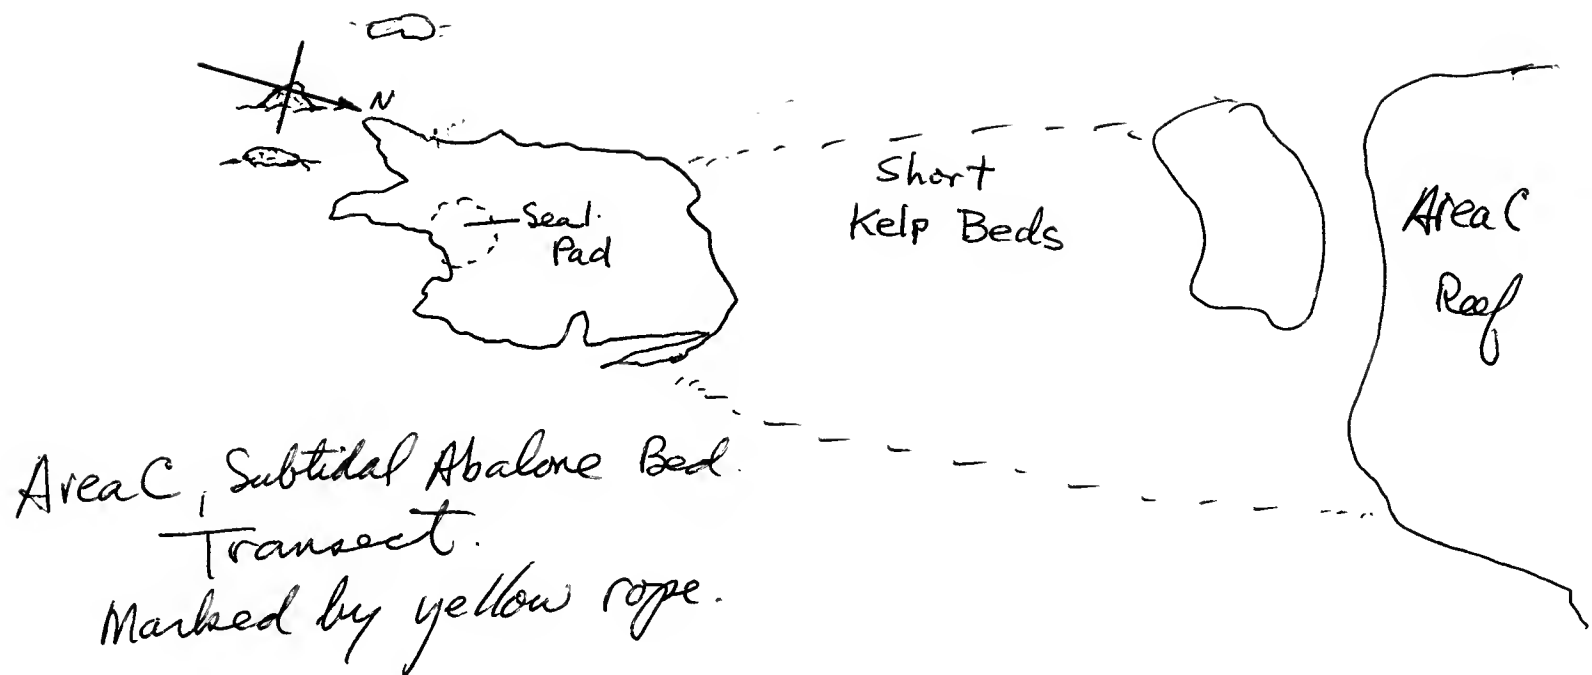 N
Seal
Pad
Short
Kelp Beds
Area C
Reef
Area C, Subtidal Abalone Bed.
Transect.
Marked by yellow rope.